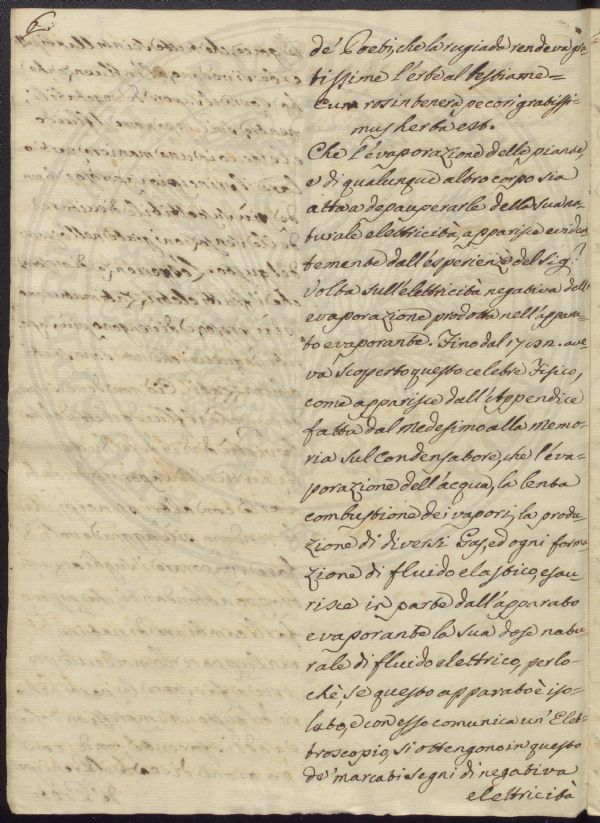 6.
de' Poeti, che la rugiada rendeva gra-
tissime l'erbe al bestiame =
Cum ros in tenera pecori gratissi-
mus herba est.
Che l'evaporazione delle piante,
e di qualunque altro corpo sia
atta a depauperarle della sua na-
turale elettricità, apparisce eviden-
temente dall'esperienze del Sig.r
Volta sull'elettricità negativa dell'
evaporazione prodotta nell'appara-
to evaporante. Fino dal ave-
va scoperto questo celebre Fisico,
come apparisce dall'Appendice
fatta dal medesimo alla memo-
ria sul Condensatore, che l'eva-
porazione dell'acqua, la lenta
combustione dei vapori, la produ-
zione di diversi Gas, ed ogni forma-
zione di fluido elastico, esau-
risce in parte dall'apparato
evaporante la sua dose natu-
rale di fluido elettrico, perlo-
chè, se questo apparato è iso-
lato, e con esso comunica un' Elet-
troscopio, si ottengono in questo
de' marcati segni di negativa
elettricità